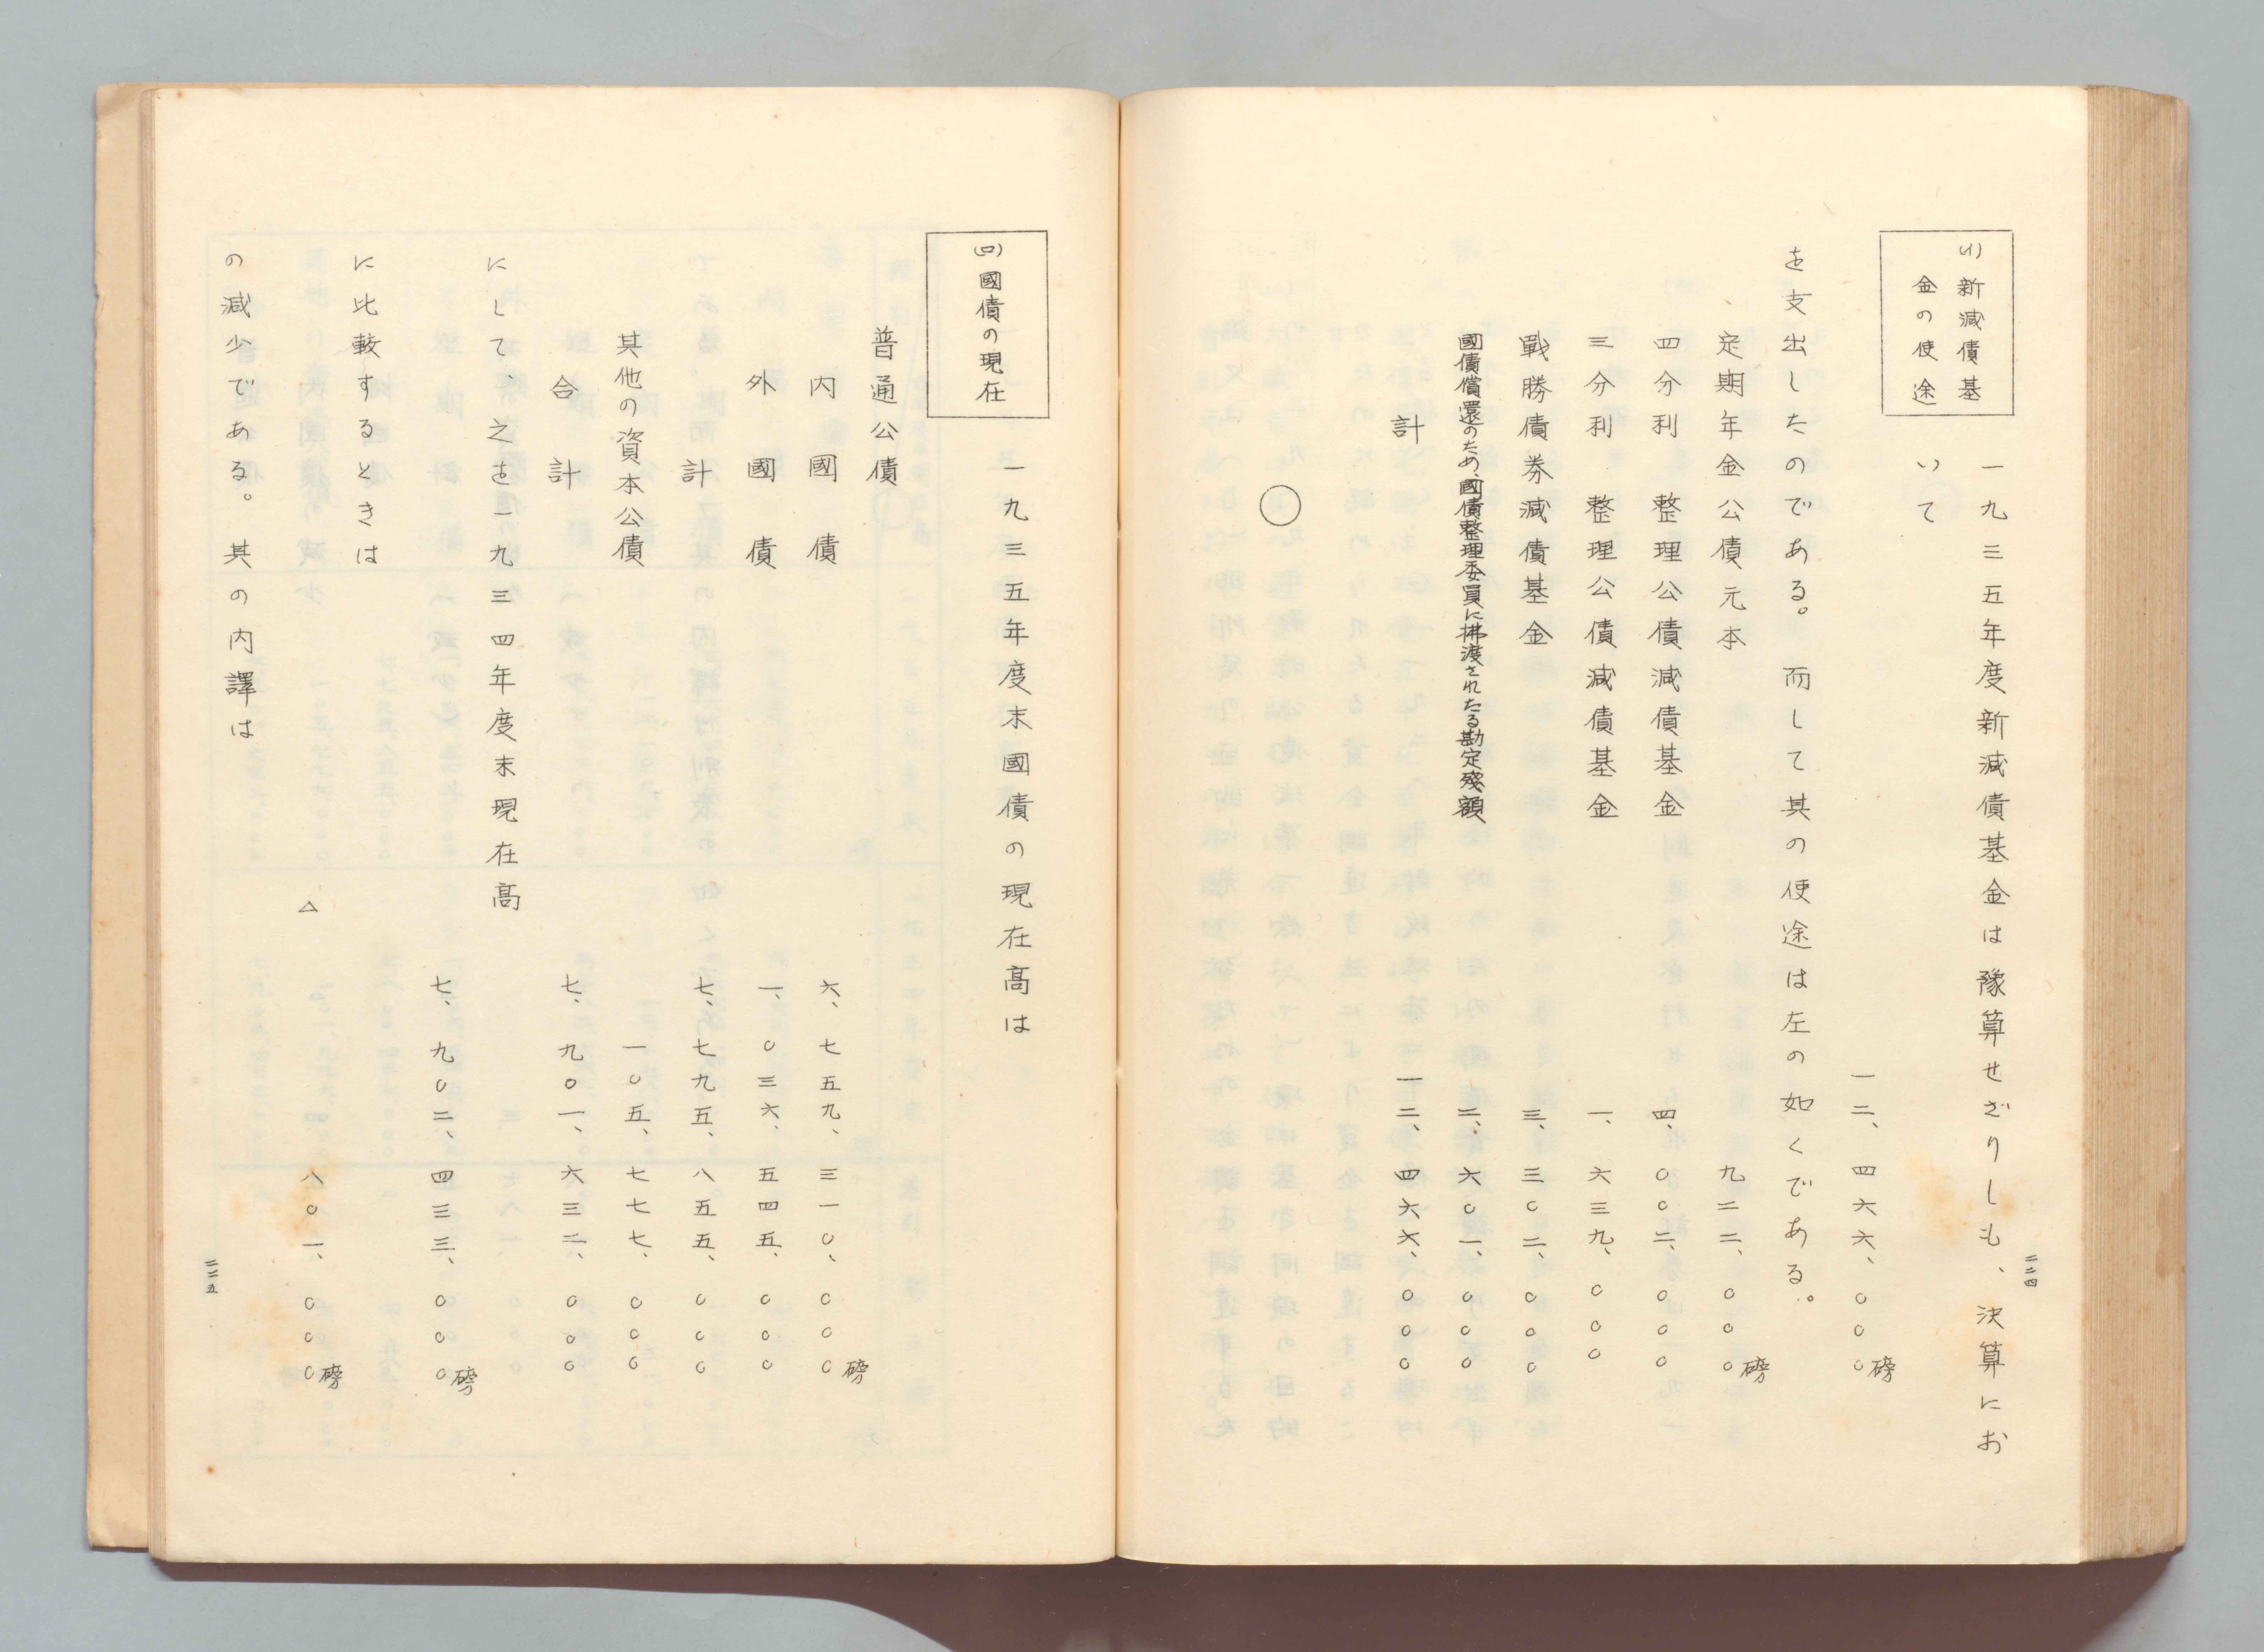 二二四
(ハ) 新減債基
金の使途
一九三五年度新減債基金は豫算せざりしも、決算にお
いて
一二、四六六、〇〇〇磅
を支出したのである。而して其の使途は左の如くである。
定期年金公債元本 九二二、〇〇〇磅
四分利 整理公債減債基金 四、〇〇二、〇〇〇
三分利 整理公債減債基金 一、六三九、〇〇〇
戰勝債券減債基金 三、三〇二、〇〇〇
國債償還のため、國債整理委員に拂渡されたる勘定殘額 二、六〇一、〇〇〇
計 一二、四六六、〇〇〇
〇
(四) 國債の現在
一九三五年度末國債の現在高は
普通公債
内國債 六、七五九、三一〇、〇〇〇磅
外國債 一、〇三六、五四五、〇〇〇
計 七、七九五、八五五、〇〇〇
其他の資本公債 一〇五、七七七、〇〇〇
合計 七、九〇一、六三二、〇〇〇
にして、之を一九三四年度末現在高
七、九〇二、四三三、〇〇〇磅
に比較するときは
△ 八〇一、〇〇〇磅
の減少である。其の内譯は
二二五